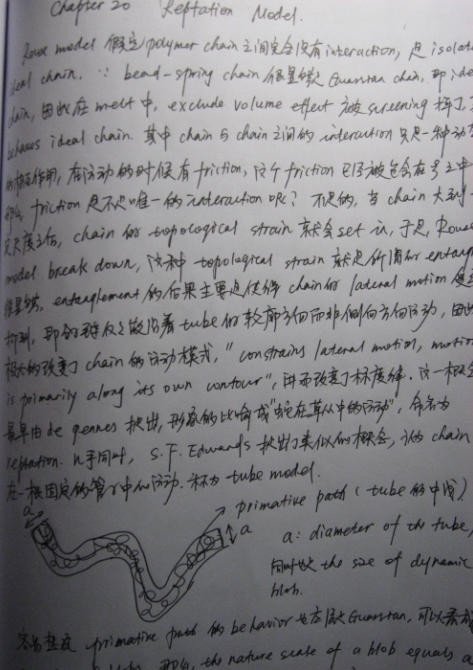 Chapter 20 Reptation Model.
Rouse model 假定 polymer chain 之间完全没有 interaction, 是 isolated
ideal chain. ∵ bead-spring chain Gaussian chain, 即 ideal
chain, 因此在 melt 中, exclude volume effect 被 screening 掉了,
behaves ideal chain. 其中 chain 与 chain 之间的 interaction 只是一种
的作用, 在运动的时候有 friction, 这个 friction 已经被包含在 ξ 中
那么 friction 是不是唯一的 interaction 呢? 不是的, 当 chain 大到一
定尺度之后, chain 的 topological strain 就会 set in, 于是, Rouse
model break down, 这种 topological strain 就是所谓的 entanglement
entanglement 的后果主要是使得 chain 的 lateral motion 受到
抑制, 即沿着 tube 的轮廓方向而非侧向方向运动, 因此
极大的改变了 chain 的运动模式, "constrains lateral motion, motion
is primarily along its own contour", 进而改变了标度律. 这一概念
最早由 de Gennes 提出, 形象的比喻成"蛇在草丛中的运动", 命名为
reptation. 几乎同时, S.F. Edwards 提出了类似的概念, 认为 chain
在一根固定的管子中运动. 称为 tube model.
a
primative path (tube 的中线)
a
a: diameter of the tube,
同时也是 the size of dynamic
blob.
容易 primative path 的 behavior 也应是 Gaussian, 可以看成
blob, 那么, the nature scale of a blob equals a